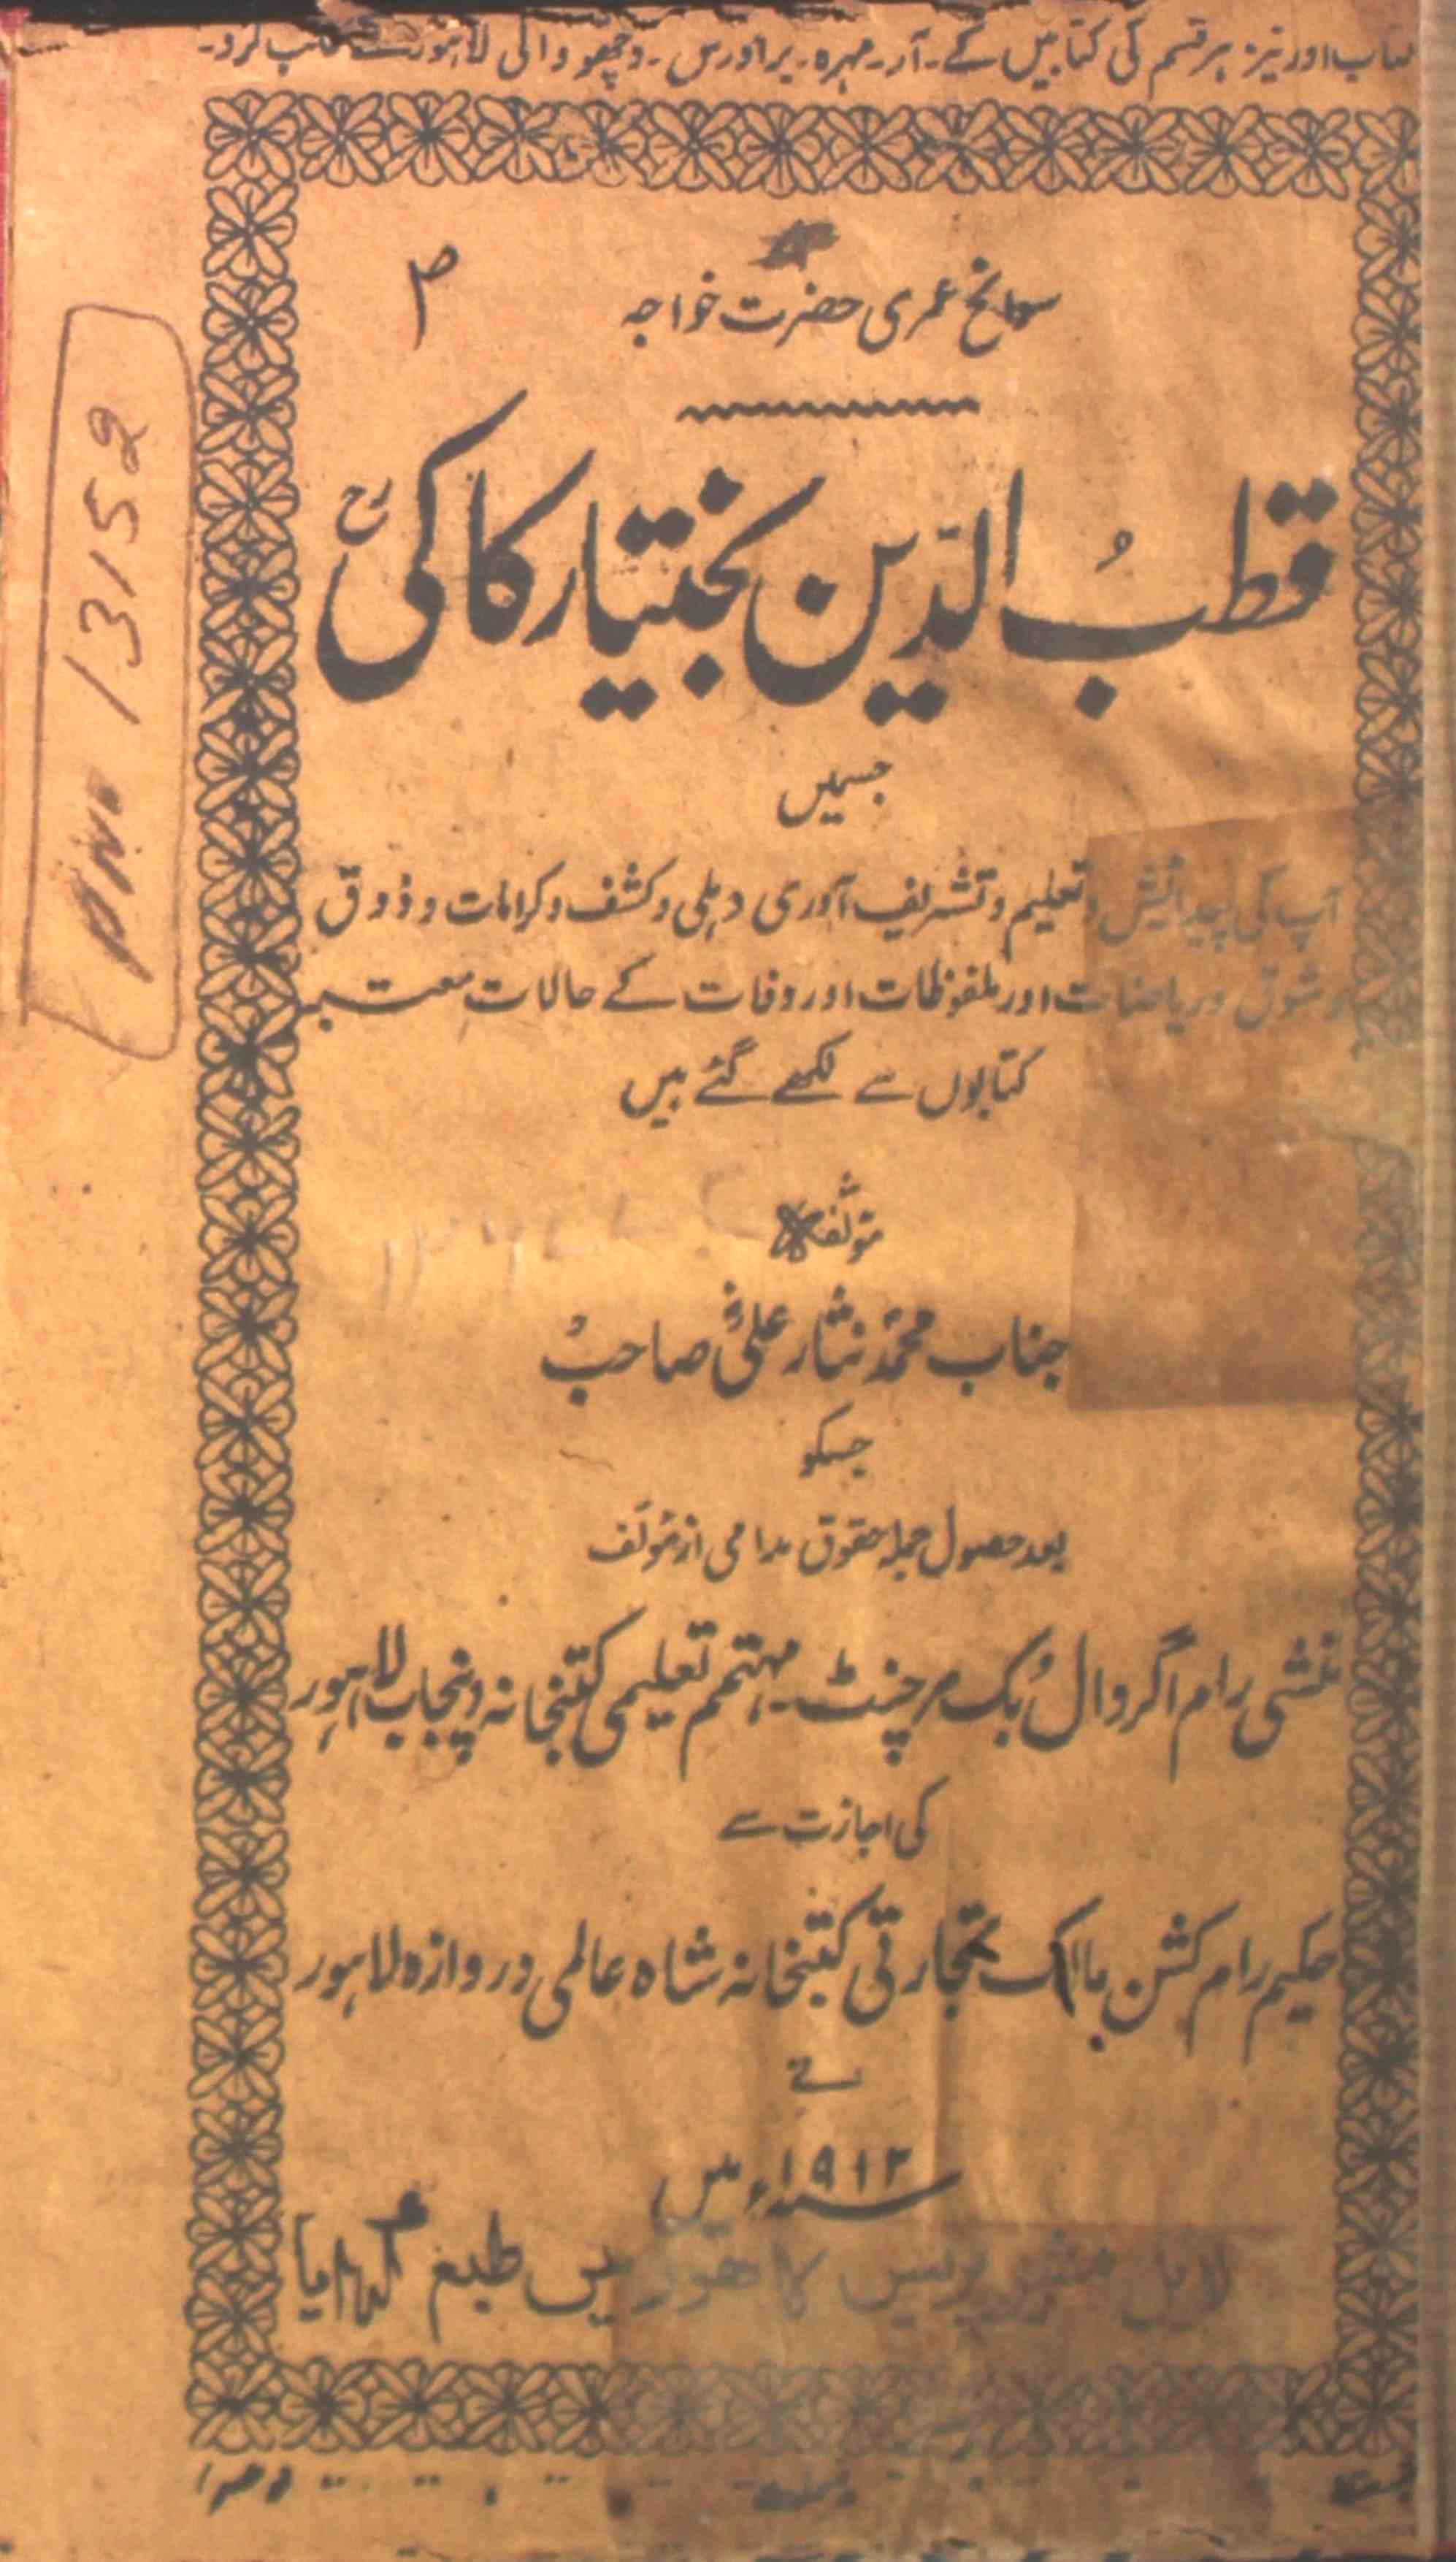 اور نیز ہر قسم کی کتابیں کے۔ آر۔ مہرہ۔ برادرس۔ وچھو والی لاہور سے طلب کرو۔
سوانح عمری حضرت خواجہ
قطبُ الدّین بختیار کاکیؒ
جسمیں
آپ کی پیدائش و تعلیم و تشریف آوری دہلی و کشف و کرامات و ذوق
و شوق و ریاضات اور ملفوظات اور وفات کے حالات معتبر
کتابوں سے لکھے گئے ہیں
مؤلفہ
جناب محمد نثار علی صاحب
جسکو
بعد حصول جملہ حقوق مدامی از مؤلف
منشی رام اگروال بُک مرچنٹ۔ مہتمم تعلیمی کتبخانہ پنجاب لاہور
کی اجازت سے
حکیم رام کشن مالک تجارتی کتبخانہ شاہ عالمی دروازہ لاہور
نے
سنہ ۱۹۱۲ء میں
لایل پریس لاہور میں طبع کرایا
13152